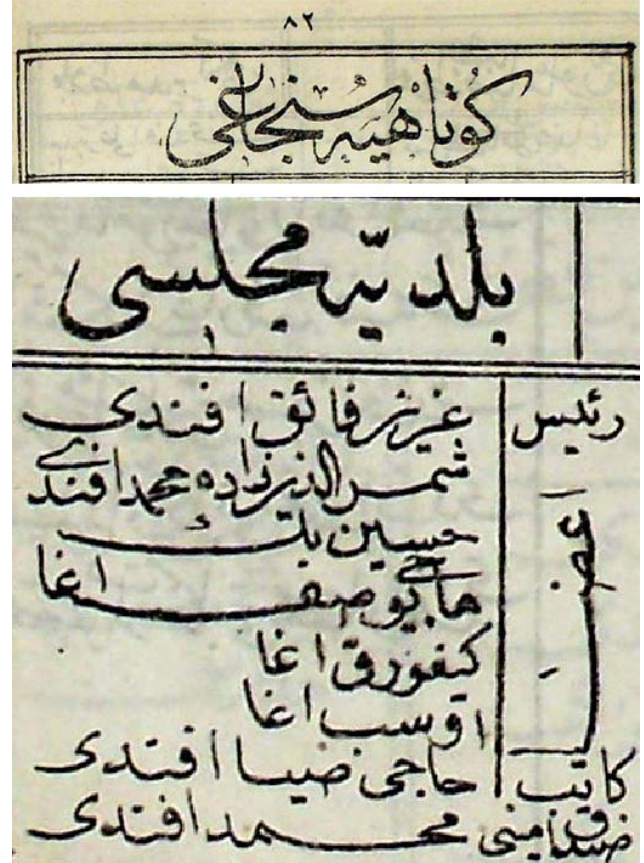 ٨٢
كوتاهيه سنجاغی
بلديّه مجلسی
رئيس عزيز فائق افندی
اعضا شمس الدين زاده محمد افندی
حسين بك
حاجی يوصف اغا
كيفورق اغا
اوسب اغا
كاتب حاجی ضيا افندی
صندق امينی محمد افندی